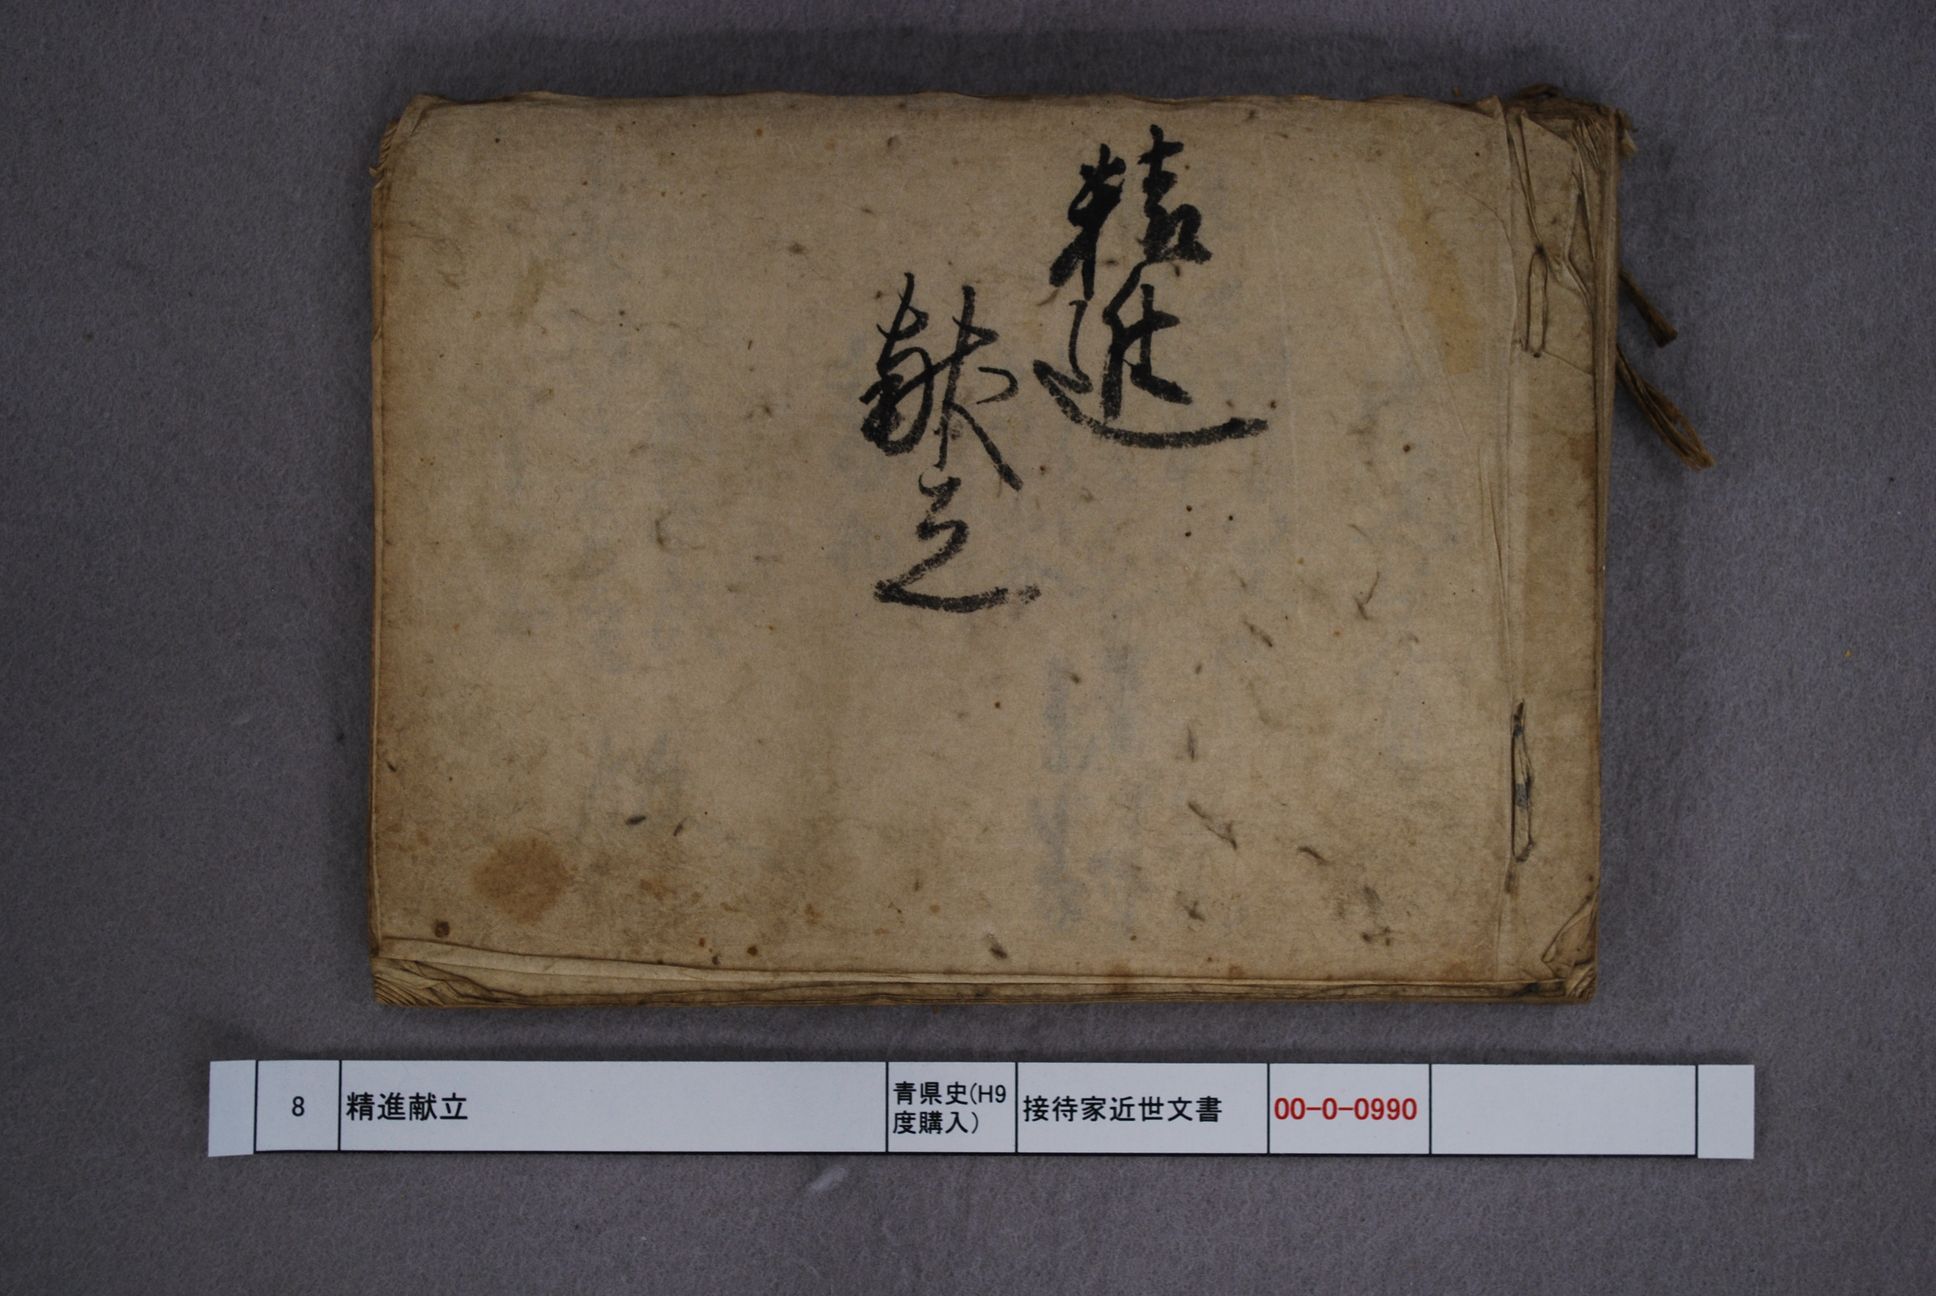 精進
献立
8
精進献立
青県史(H9
度購入)
接待家近世文書
00-0-0990